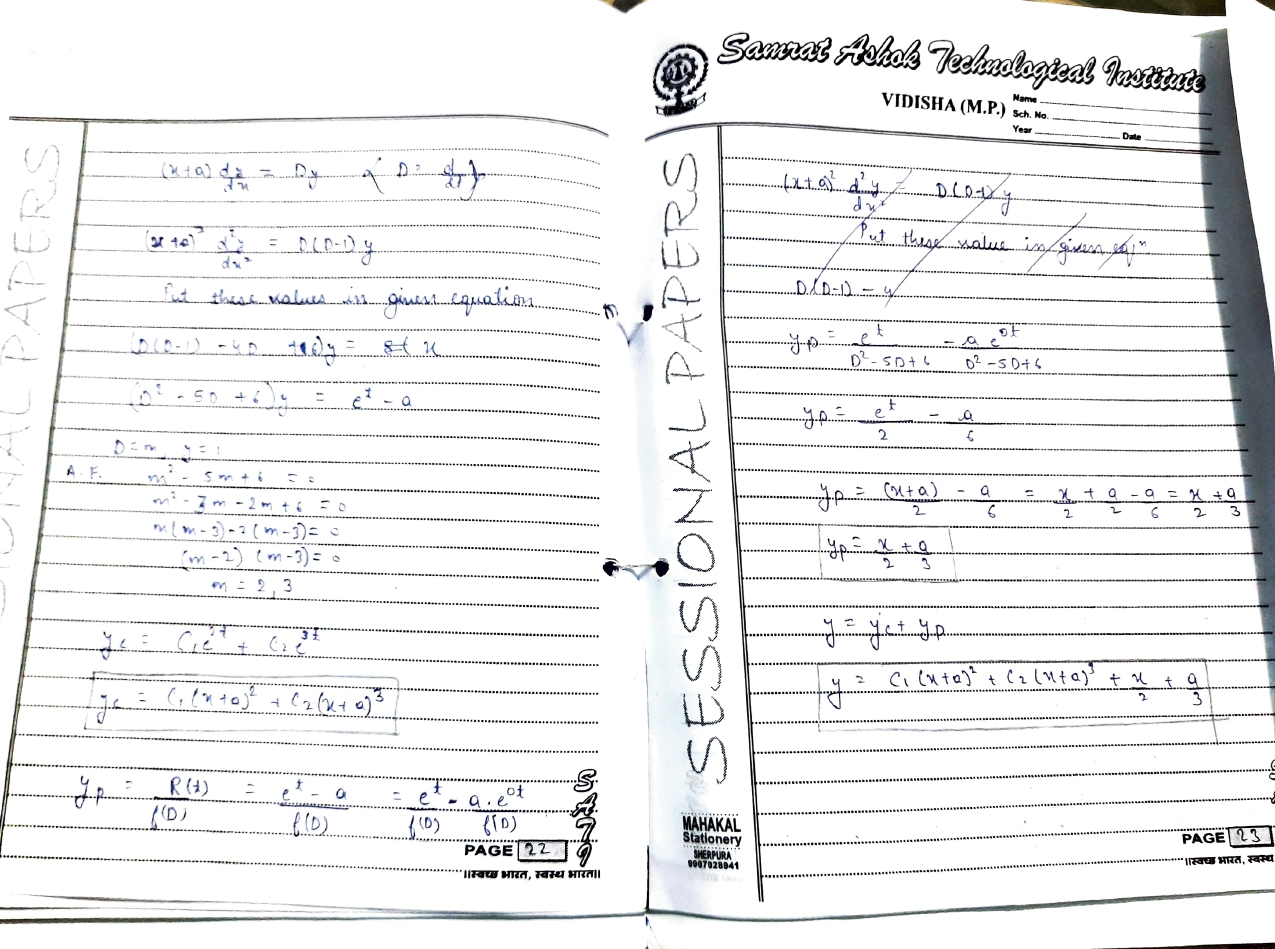 SESSIONAL PAPERS
(x+a) dy/dx = Dy { D = d/dt }
(x+a)² d²y/dx² = D(D-1)y
Put these values in given equation
(D(D-1) - 4D + 6)y = x
(D² - 5D + 6)y = e^t - a
D = m, y = 1
A.F. m² - 5m + 6 = 0
m² - 3m - 2m + 6 = 0
m(m-3) - 2(m-3) = 0
(m-2) (m-3) = 0
m = 2, 3
yc = C₁e^2t + C₂e^3t
yc = C₁(x+a)² + C₂(x+a)³
yp = R(t)/f(D) = e^t - a/f(D) = e^t/f(D) - a.e^0t/f(D)
SATI
PAGE 22
॥स्वच्छ भारत, स्वस्थ भारत॥
Samrat Ashok Technological Institute
VIDISHA (M.P.)
Name
Sch. No.
Year Date
SESSIONAL PAPERS
(x+a)² d²y/dx² = D(D-1)y
Put these value in given eqⁿ
D(D-1) - 4
yp = e^t/D²-5D+6 - a e^0t/D²-5D+6
yp = e^t/2 - a/6
yp = (x+a)/2 - a/6 = x/2 + a/2 - a/6 = x/2 + a/3
yp = x/2 + a/3
y = yc + yp
y = C₁(x+a)² + C₂(x+a)³ + x/2 + a/3
MAHAKAL
Stationery
SHERPURA
9907028941
PAGE 23
॥स्वच्छ भारत, स्वस्थ